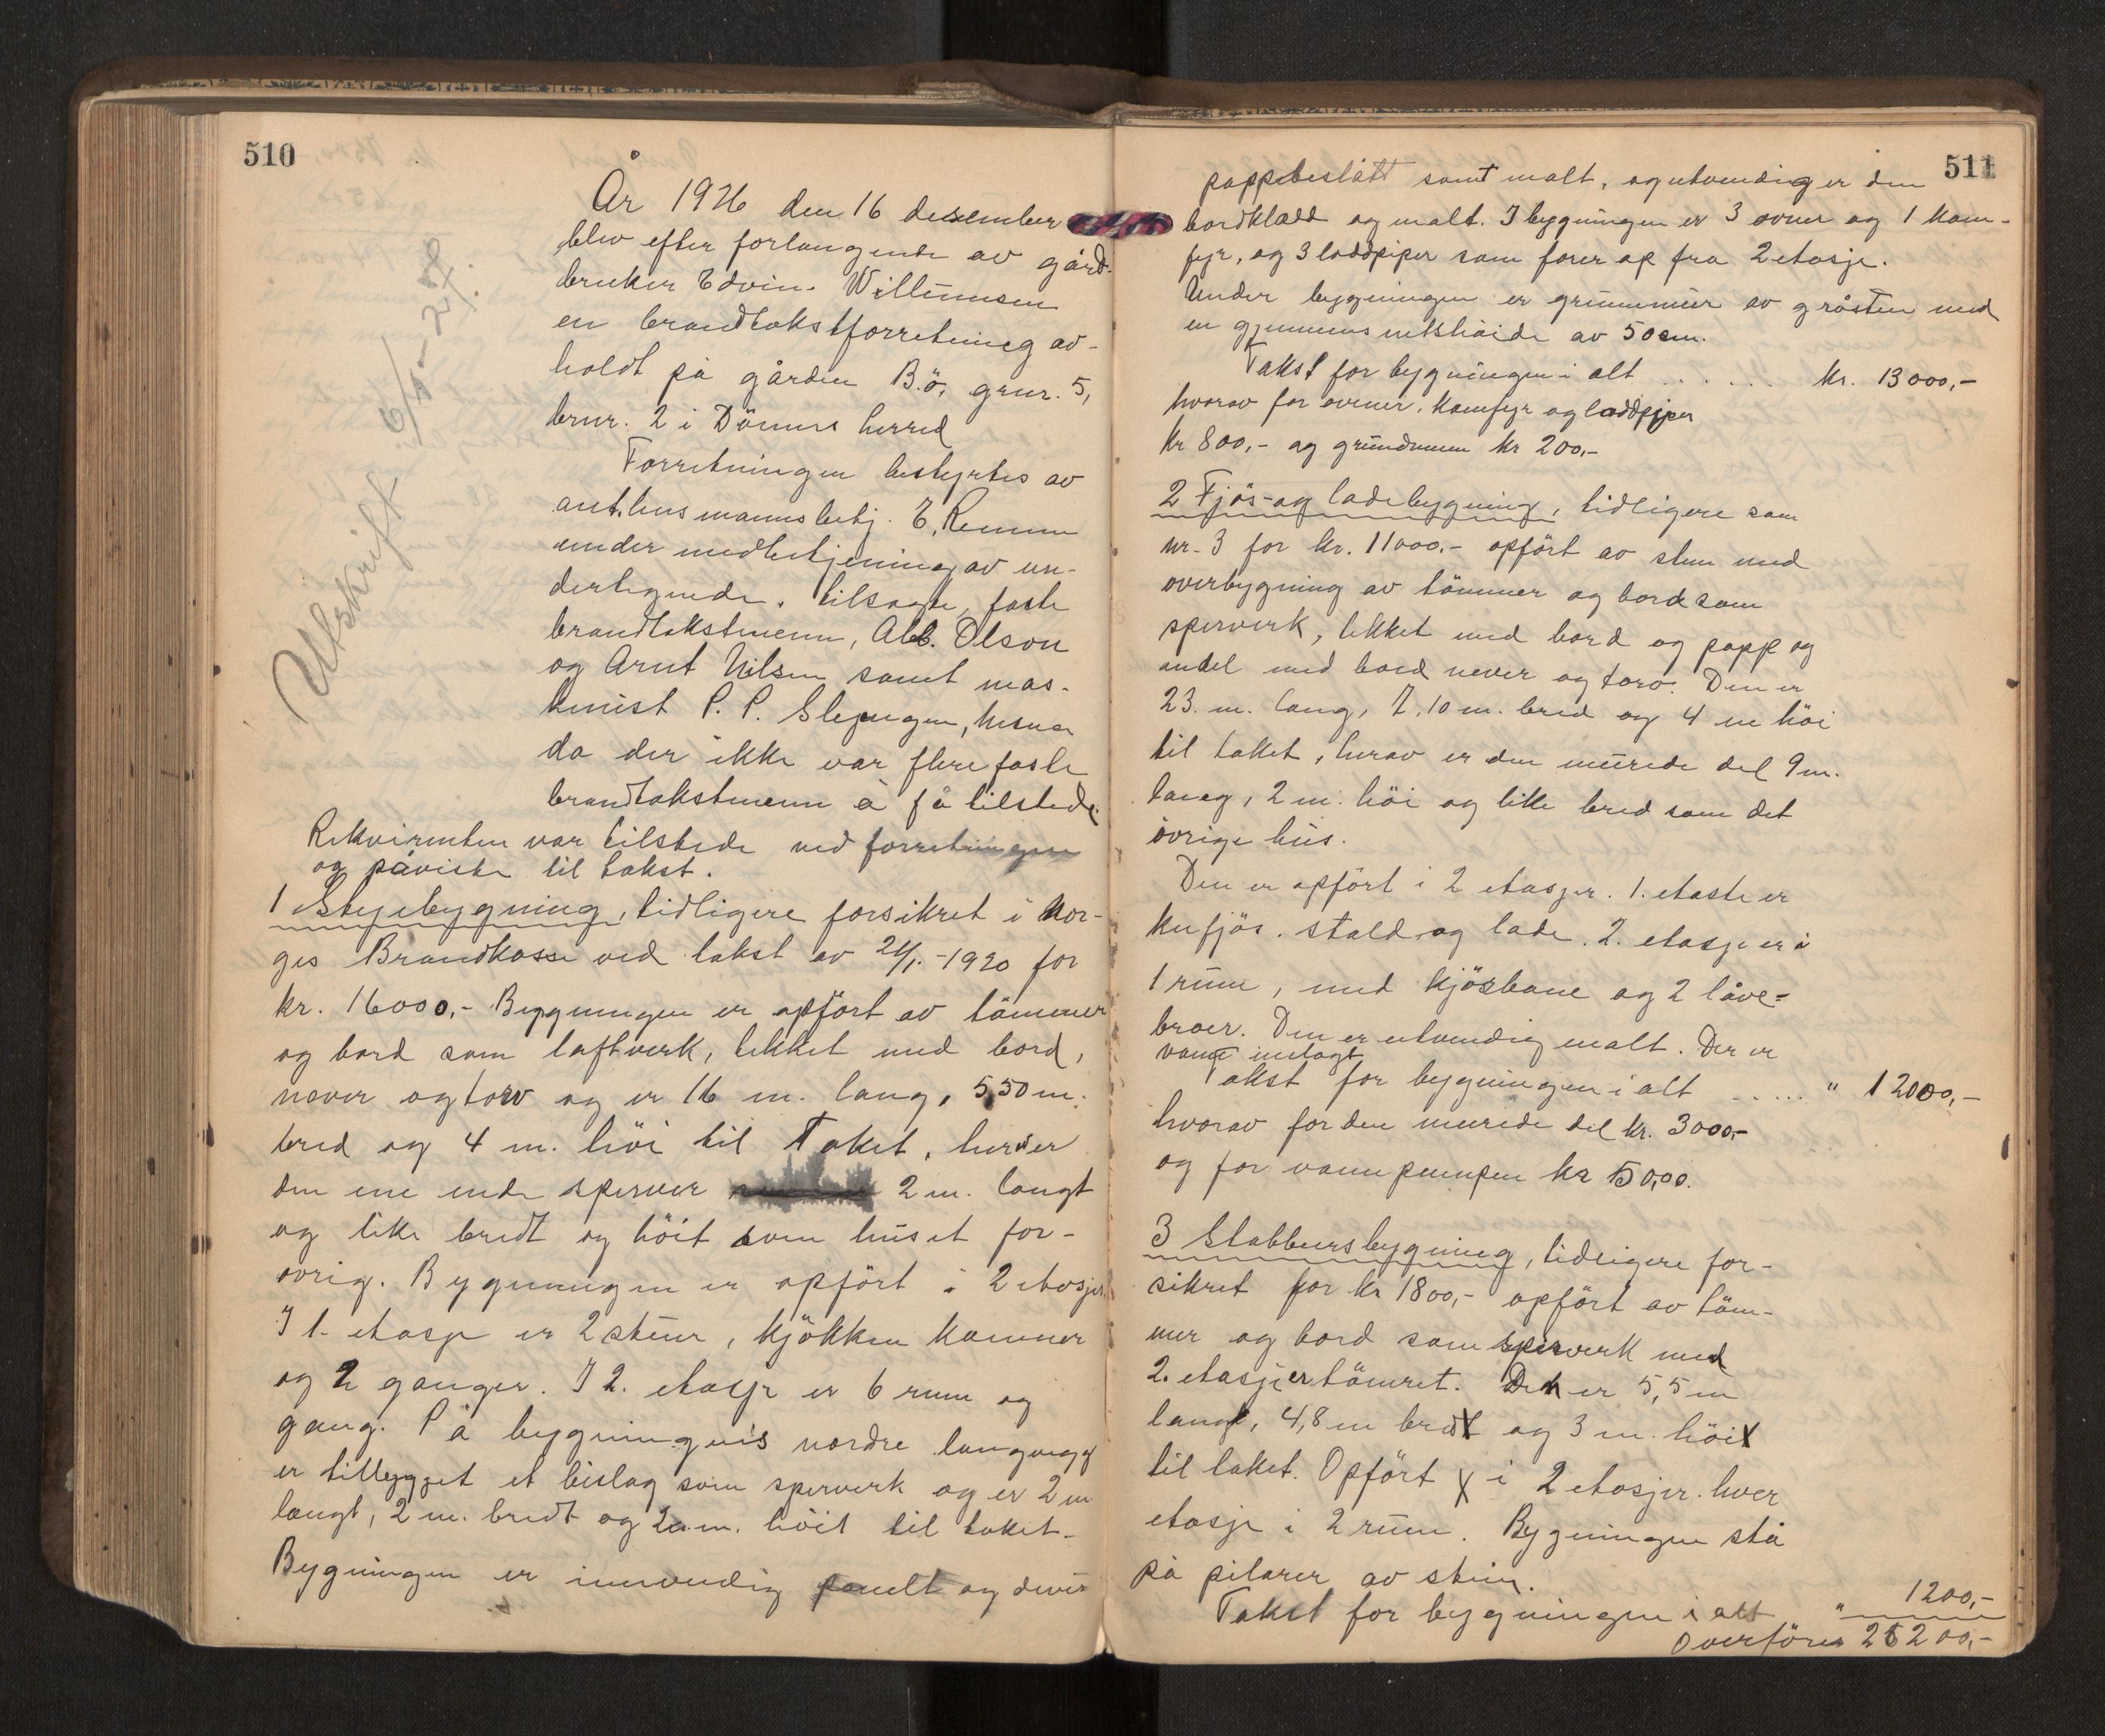 510
År 1926 den 16 desember
blev efter forlangende av gård-
bruker Edvin Willumsen
en brandtakstforretning av-
holdt på gården Bö, grnr. 5,
brnr. 2 i Dönnes herred
Forretningen bestyrtes av
ant. lensmannsbetj. E,
under medbetjening av un-
dertegnede, tilsagte, faste
brandtakstmenn, Alb. Olson
og Arnt Nilsen samt mas-
kinist P. P.
da der ikke var flere faste
brandtakstmenn å få tilstede.
Rekvirenten var tilstede ved forretningen
og påviste til takst.
Utskrift 6/1-27.
1 Stuebygning, tidligere forsikret i Nor-
ges Brandkasse ved takst av 21/1.-1920 for
kr. 16000,- Bygningen er opfört av tömmer
og bord som laftverk, tekket med bord,
never og torv og er 16 m. lang, 5,50 m.
bred og 4 m. höi til Taket, herav er
den ene ende sperver 2 m. langt
og like bredt og höit som huset for-
övrig. Bygningen er opfört i 2 etasjer.
I 1. etasje er 2 stuer, kjökken kammer
og 2 ganger. I 2. etasje er 6 rum og
gang. På bygningens nordre langvegg
er tillbygget et bislag som sperverk og er 2 m
langt, 2 m. bredt og 2 m. höit til taket.
Bygningen er innvendig panelt og
511
pappbeslått samt malt, og utvendig er den
bordklædd og malt. I bygningen er 3 ovner og 1 kom-
fyr, og 3 loddpiper som förer op fra 2 etasje.
Under bygningen er grunnmur av gråsten med
en gjennemsnitshöide av 50 cm.
Takst for bygningen i alt ...... kr. 13000,-
hvorav for ovner, komfyr og loddpiper
kr 800,- og grundmuren kr 200,-
2 Fjös- og ladebygning, tidligere som
nr. 3 for kr. 11000.- opfört av sten med
overbygning av tömmer og bord som
sperverk, tekket med bord og papp og
endel med bord never og torv. Den er
23. m. lang, 7,10 m. bred og 4 m höi
til taket, herav er den murede del 9 m.
lang, 2 m. höi og like bred som det
övrige hus.
Den er opfört i 2 etasjer. 1. etaste er
kufjös. stald og lade. 2. etasje er i
1 rum, med kjörbane og 2 låve-
broer. Den er utvendig malt. Der er
vann innlagt
Takst for bygningen i alt ..... " 12000,-
hvorav for den murede del kr. 3000,-
og for vannpumpen kr 50,00.
3 Stabbursbygning, tidligere for-
sikret for kr 1800,- opfört av töm-
mer og bord som sperverk med
2. etasje er tömret. Den er 5,5 m
lang, 4,8 m bred og 3 m. höi
til taket. Opfört i 2 etasjer. hver
etasje i 2 rum. Bygningen stå
på pilarer av sten.
Takst for bygningen i alt " 1200,-
Overföres 26200,-